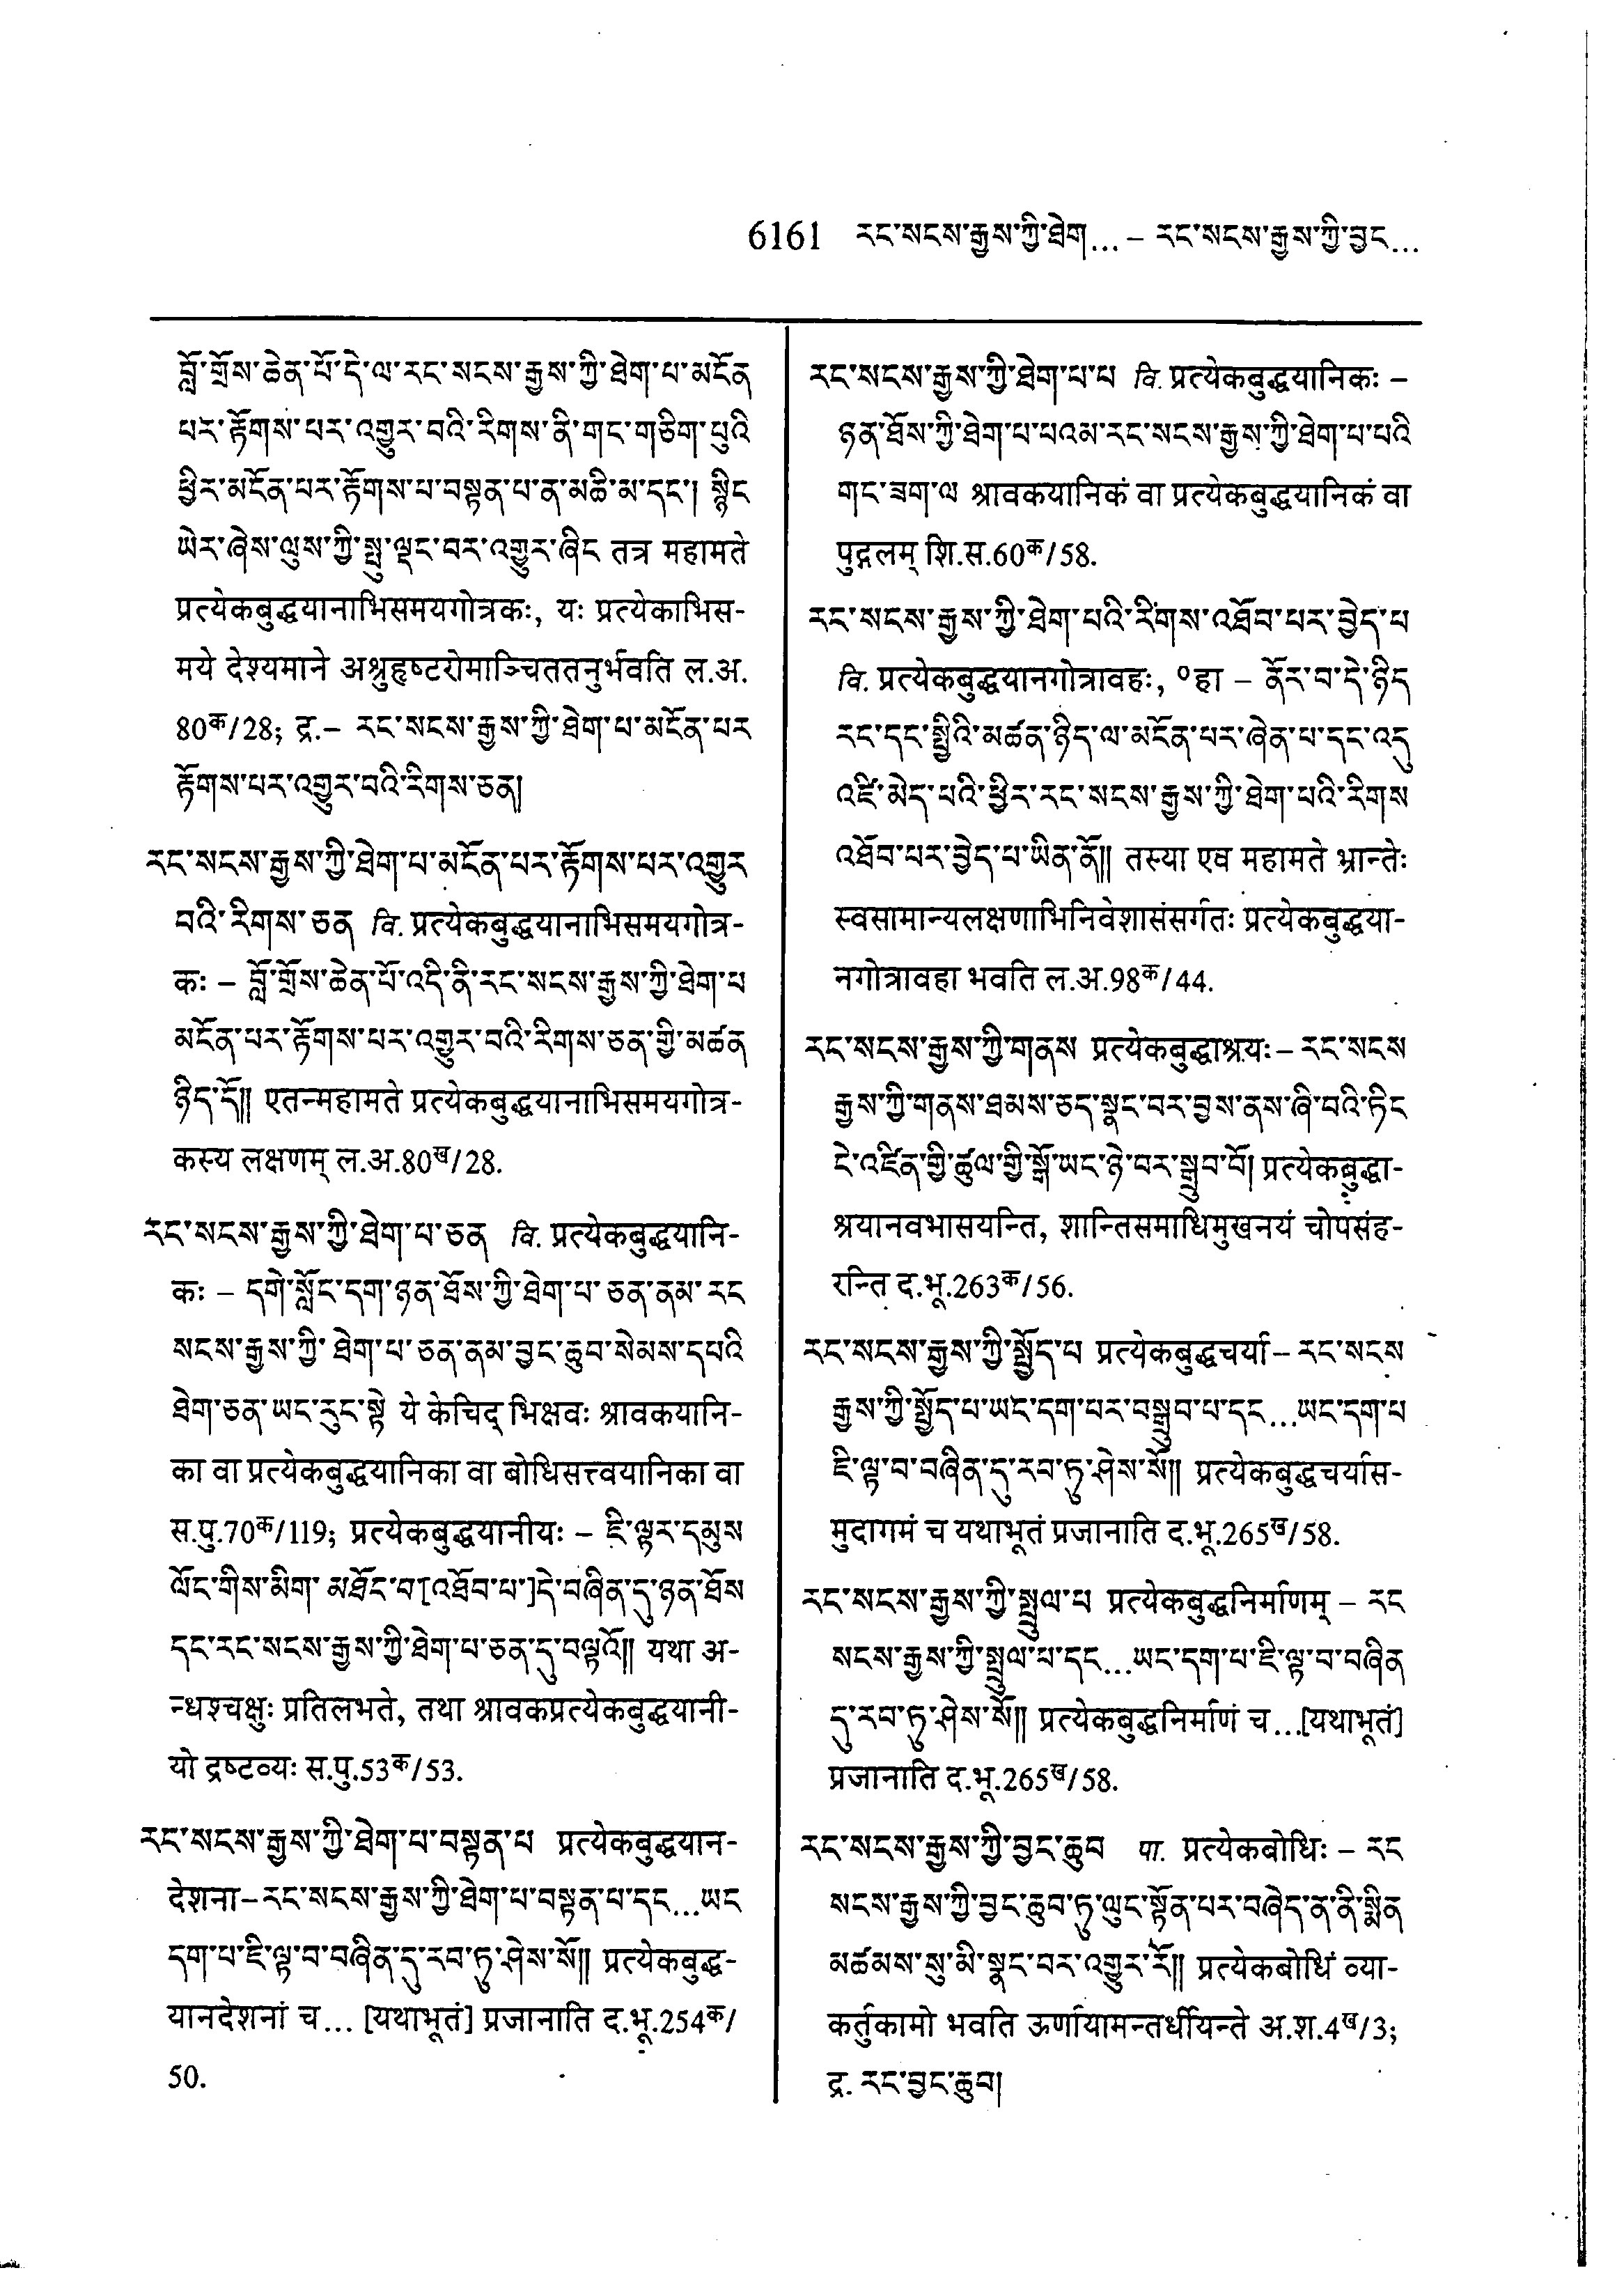 6161 རང་སངས་རྒྱས་ཀྱི་ཐེག... – རང་སངས་རྒྱས་ཀྱི་བྱང...
བློ་གྲོས་ཆེན་པོ་དེ་ལ་རང་སངས་རྒྱས་ཀྱི་ཐེག་པ་མངོན
པར་རྟོགས་པར་འགྱུར་བའི་རིགས་ནི་གང་གཅིག་པུའི
ཕྱིར་མངོན་པར་རྟོགས་པ་བསྟན་པ་ན་མཆི་མ་དང་། སྙིང
ཡེར་ཞེས་ལུས་ཀྱི་སྤུ་ལྡང་བར་འགྱུར་ཞིང तत्र महामते
प्रत्येकबुद्धयानाभिसमयगोत्रकः, यः प्रत्येकाभिस-
मये देश्यमाने अश्रुहृष्टरोमाञ्चिततनुर्भवति ल.अ.
80क/28; द्र.– རང་སངས་རྒྱས་ཀྱི་ཐེག་པ་མངོན་པར
རྟོགས་པར་འགྱུར་བའི་རིགས་ཅན།
རང་སངས་རྒྱས་ཀྱི་ཐེག་པ་མངོན་པར་རྟོགས་པར་འགྱུར
བའི་རིགས་ཅན वि. प्रत्येकबुद्धयानाभिसमयगोत्र-
कः – བློ་གྲོས་ཆེན་པོ་འདི་ནི་རང་སངས་རྒྱས་ཀྱི་ཐེག་པ
མངོན་པར་རྟོགས་པར་འགྱུར་བའི་རིགས་ཅན་གྱི་མཚན
ཉིད་དོ།། एतन्महामते प्रत्येकबुद्धयानाभिसमयगोत्र-
कस्य लक्षणम् ल.अ.80ख/28.
རང་སངས་རྒྱས་ཀྱི་ཐེག་པ་ཅན वि. प्रत्येकबुद्धयानि-
कः – དགེ་སློང་དག་ཉན་ཐོས་ཀྱི་ཐེག་པ་ཅན་ནམ་རང
སངས་རྒྱས་ཀྱི་ཐེག་པ་ཅན་ནམ་བྱང་ཆུབ་སེམས་དཔའི
ཐེག་ཅན་ཡང་རུང་སྟེ ये केचिद् भिक्षवः श्रावकयानि-
का वा प्रत्येकबुद्धयानिका वा बोधिसत्त्वयानिका वा
स.पु.70क/119; प्रत्येकबुद्धयानीयः – ཇི་ལྟར་དམུས
ལོང་གིས་མིག་མཐོང་བ[འཐོབ་པ་]དེ་བཞིན་དུ་ཉན་ཐོས
དང་རང་སངས་རྒྱས་ཀྱི་ཐེག་པ་ཅན་དུ་བལྟའོ།། यथा अ-
न्धश्चक्षुः प्रतिलभते, तथा श्रावकप्रत्येकबुद्धयानी-
यो द्रष्टव्यः स.पु.53क/53.
རང་སངས་རྒྱས་ཀྱི་ཐེག་པ་བསྟན་པ प्रत्येकबुद्धयान-
देशना–རང་སངས་རྒྱས་ཀྱི་ཐེག་པ་བསྟན་པ་དང...ཡང
དག་པ་ཇི་ལྟ་བ་བཞིན་དུ་རབ་ཏུ་ཤེས་སོ།། प्रत्येकबुद्ध-
यानदेशनां च... [यथाभूतं] प्रजानाति द.भू.254क/
50.
རང་སངས་རྒྱས་ཀྱི་ཐེག་པ་པ वि. प्रत्येकबुद्धयानिकः –
ཉན་ཐོས་ཀྱི་ཐེག་པ་པའམ་རང་སངས་རྒྱས་ཀྱི་ཐེག་པ་པའི
གང་ཟག་ལ श्रावकयानिकं वा प्रत्येकबुद्धयानिकं वा
पुद्गलम् शि.स.60क/58.
རང་སངས་རྒྱས་ཀྱི་ཐེག་པའི་རིགས་འཐོབ་པར་བྱེད་པ
वि. प्रत्येकबुद्धयानगोत्रावहः, ०हा – ནོར་བ་དེ་ཉིད
རང་དང་སྤྱིའི་མཚན་ཉིད་ལ་མངོན་པར་ཞེན་པ་དང་འདུ
འཛི་མེད་པའི་ཕྱིར་རང་སངས་རྒྱས་ཀྱི་ཐེག་པའི་རིགས
འཐོབ་པར་བྱེད་པ་ཡིན་ནོ།། तस्या एव महामते भ्रान्तेः
स्वसामान्यलक्षणाभिनिवेशासंसर्गतः प्रत्येकबुद्धया-
नगोत्रावहा भवति ल.अ.98क/44.
རང་སངས་རྒྱས་ཀྱི་གནས प्रत्येकबुद्धाश्रयः– རང་སངས
རྒྱས་ཀྱི་གནས་ཐམས་ཅད་སྣང་བར་བྱས་ནས་ཞི་བའི་ཏིང
ངེ་འཛིན་གྱི་ཚུལ་གྱི་སྒོ་ཡང་ཉེ་བར་སྒྲུབ་བོ། प्रत्येकबुद्धा-
श्रयानवभासयन्ति, शान्तिसमाधिमुखनयं चोपसंह-
रन्ति द.भू.263क/56.
རང་སངས་རྒྱས་ཀྱི་སྤྱོད་པ प्रत्येकबुद्धचर्या– རང་སངས
རྒྱས་ཀྱི་སྤྱོད་པ་ཡང་དག་པར་བསྒྲུབ་པ་དང...ཡང་དག་པ
ཇི་ལྟ་བ་བཞིན་དུ་རབ་ཏུ་ཤེས་སོ།། प्रत्येकबुद्धचर्यास-
मुदागमं च यथाभूतं प्रजानाति द.भू.265ख/58.
རང་སངས་རྒྱས་ཀྱི་སྤྲུལ་པ प्रत्येकबुद्धनिर्माणम् – རང
སངས་རྒྱས་ཀྱི་སྤྲུལ་པ་དང...ཡང་དག་པ་ཇི་ལྟ་བ་བཞིན
དུ་རབ་ཏུ་ཤེས་སོ།། प्रत्येकबुद्धनिर्माणं च...[यथाभूतं]
प्रजानाति द.भू.265ख/58.
རང་སངས་རྒྱས་ཀྱི་བྱང་ཆུབ पा. प्रत्येकबोधिः – རང
སངས་རྒྱས་ཀྱི་བྱང་ཆུབ་ཏུ་ལུང་སྟོན་པར་བཞེད་ན་ནི་སྨིན
མཚམས་སུ་མི་སྣང་བར་འགྱུར་རོ།། प्रत्येकबोधिं व्या-
कर्तुकामो भवति ऊर्णायामन्तर्धीयन्ते अ.श.4ख/3;
द्र. རང་བྱང་ཆུབ།